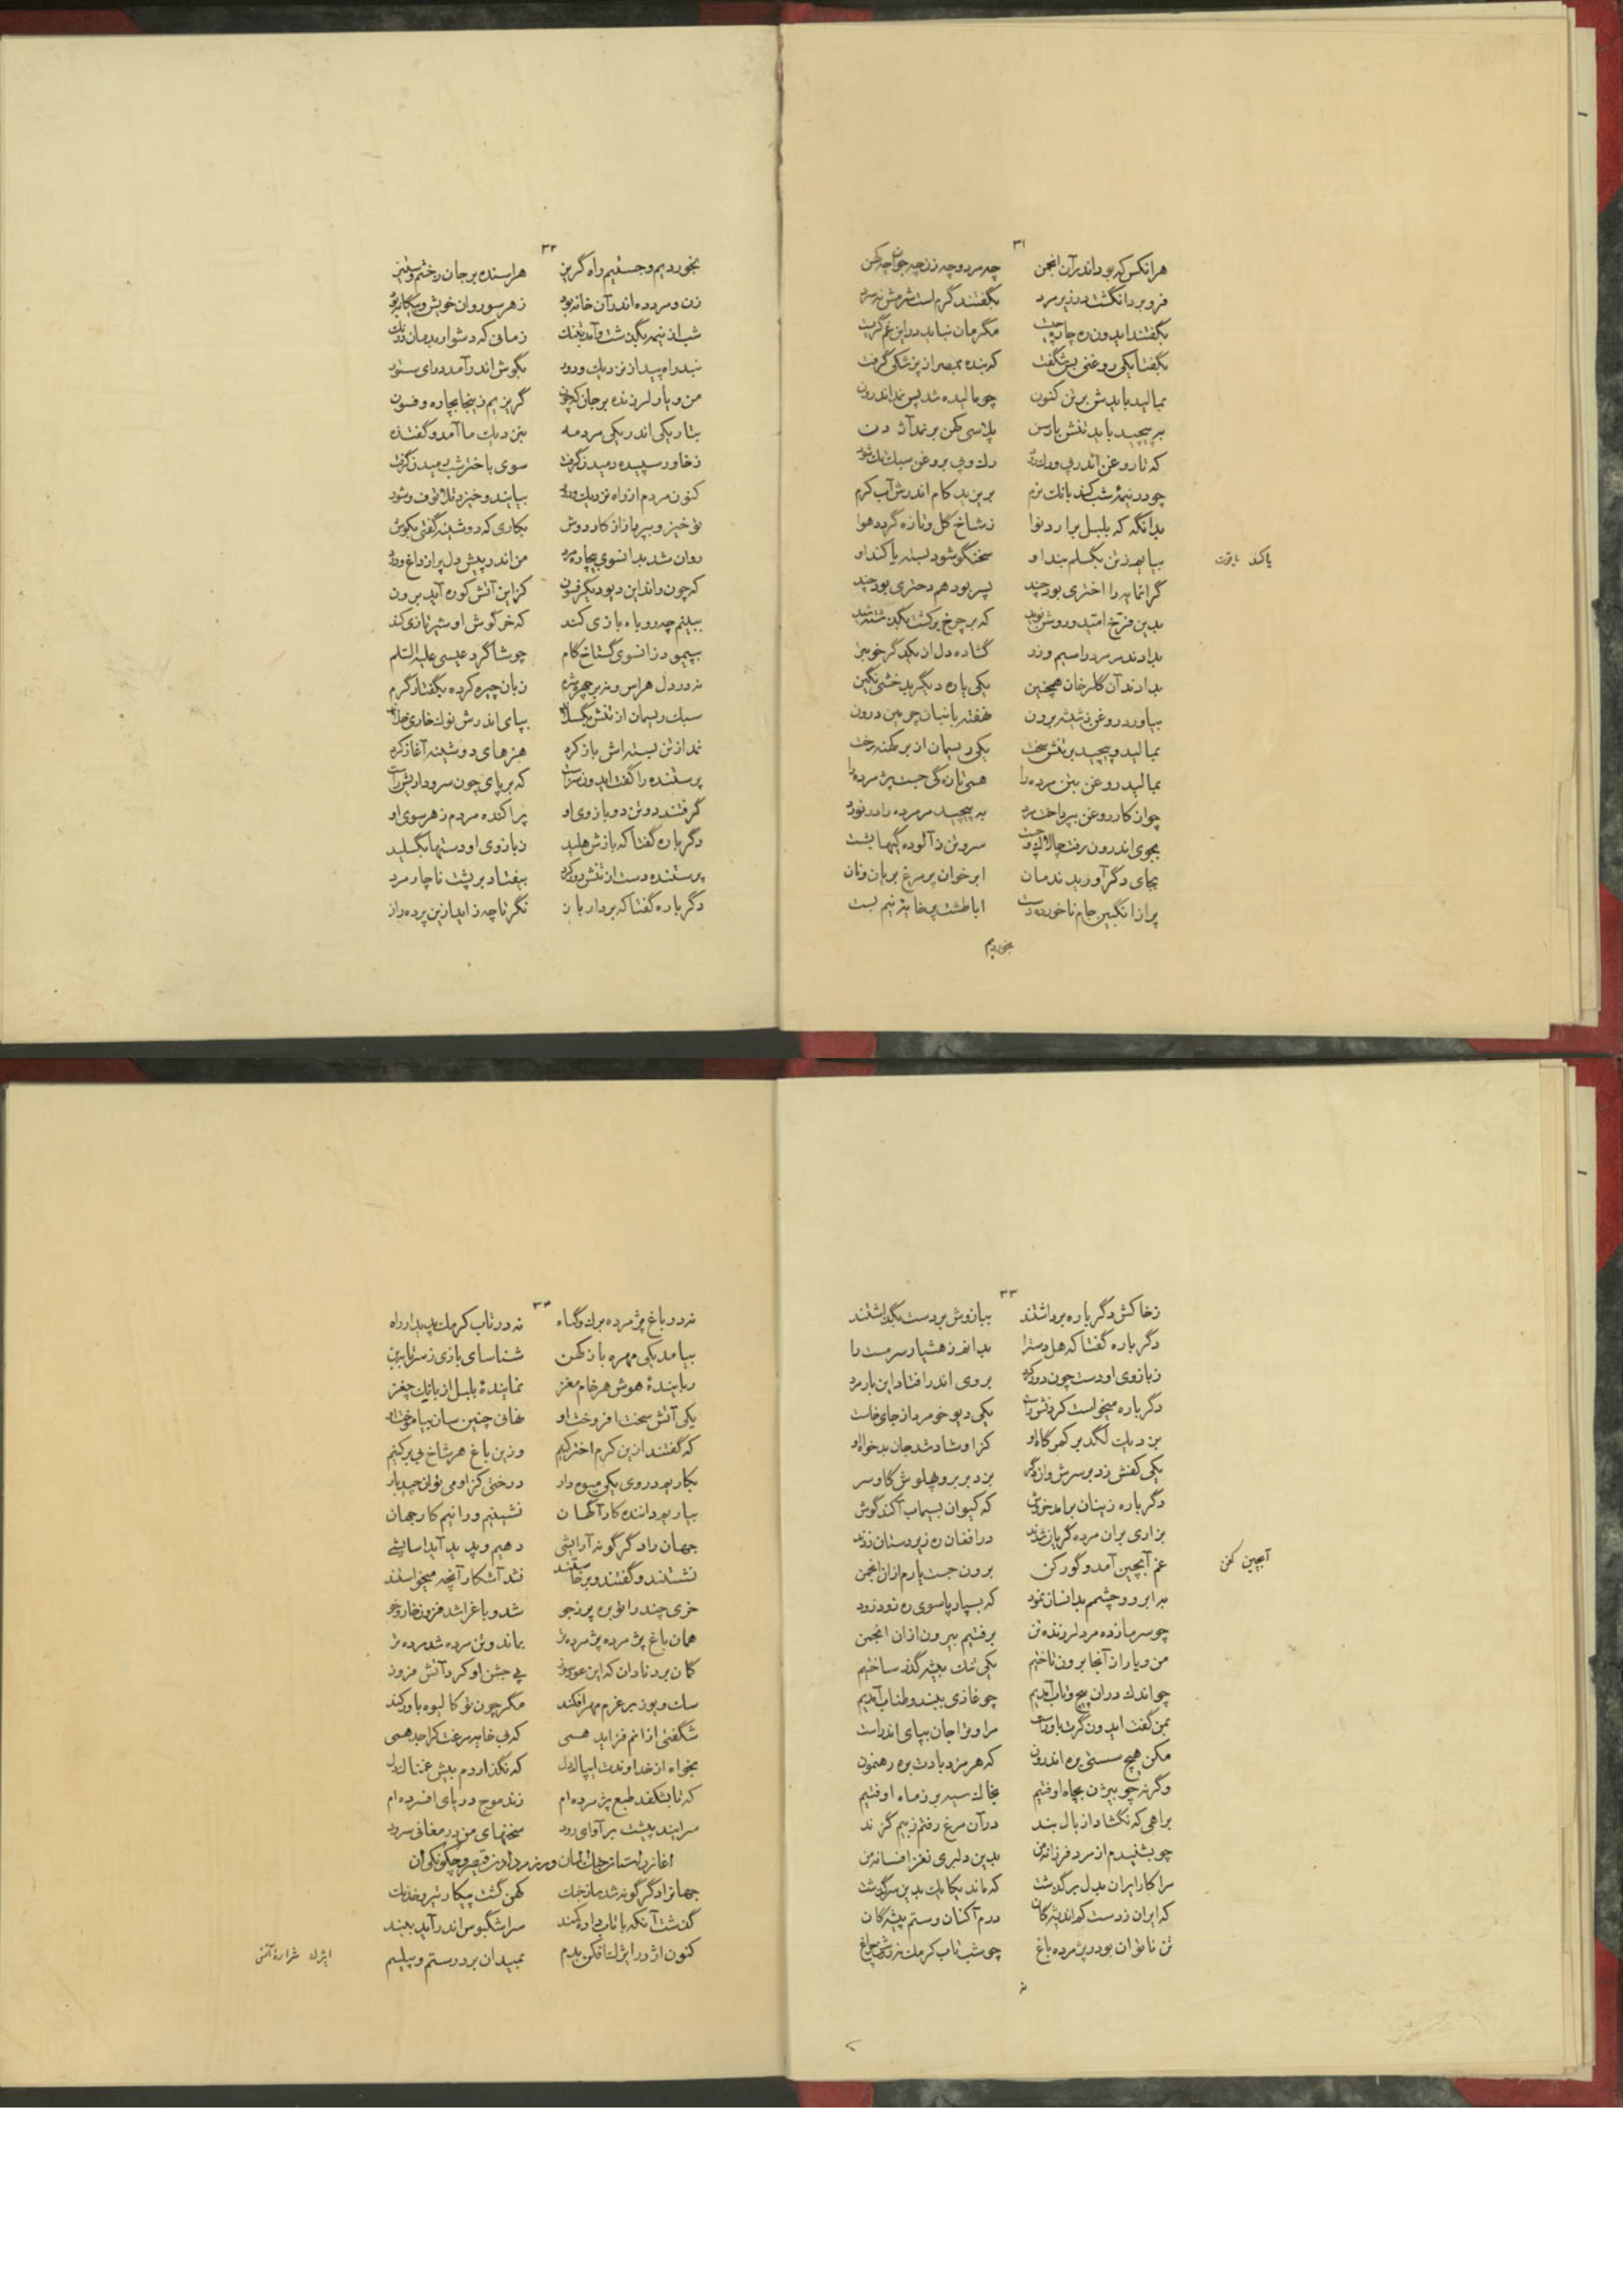 ۳۱
هرانکس که بود اندر آن انجمن چه مرد و چه زن چه جوان چه کهن
فرو برد انگشت در زیر مرد بگفتند گرم است شرمش نه سرد
بگفتند ایدون ره چاره چیست مگرمان نباید در این غم گریست
بگفتا یکی روغنی بس شگفت که بنده بمصر از پزشکی گرفت
بمالید باید ش بر تن کنون چو مالیده شد پس نمد اندرون
بپیچید باید تنش با رسن پلاسی کهن بر نمد آژدن
که تا روغن اندر پی و رک رود رک و پی بروغن سبک تک شود
چو در نیمهٔ شب کند بانک نرم بریزید کام اندرش آب گرم
بدانگه که بلبل برارد نوا ز شاخ گل و تازه گردد هوا
بیاید زتن بگسلم بند او سخنگو شود بسته یاکند او
یاکند یاقوت
گرانمایه را اختری بود چند پسر بود هم دختری بود چند
بدین فرخ امید و روشن نوید که بر چرخ برگشت بگذشته شید
بدادند مر مرد را سیم و زر گشاده دل از یکدگر خوبتر
بدادند آن گلرخان همچنین یکی یاره دیگر بدخشی نگین
بیاورد روغن ز شیشه برون نهفته بانبان چرمین درون
بمالید و پیچید بر تنش سخت یکی ریسمان از بر کهنه رخت
بمالید روغن بتن مرده را همی تازگی جست پژمرده را
چو از کار روغن بپرداخت مرد به پیچید مر مرده را در نورد
بجوی اندرون رفت چالاک و چست سر و تن ز آلوده گیها بشست
بجای دگر آورید ندمان ابر خوان پر مرغ بریان و نان
پر از انگبین جام ناخورده دست ابا طشت پر خایهٔ نیم بست
بخوردیم
۳۲
بخوردیم و جستیم راه گریز هراسنده بر جان ز خشم و ستیز
زن و مرد ده اندر آن خانه بود ز هر سو روان خویش و بیگانه بود
شب از نیمه بگذشت و آمد بتنک زمانی که دشوار بدمان درنک
نبد راه پیدا ز نزدیک و دور بگوش اندر آمد درای ستور
من و یار لرزنده بر جان که چون گریزیم زینجا بچاره و فسون
بتاریکی اندر یکی مرد مه بنزدیک ما آمد و گفت زه
ز خاور سپیده دمیدن گرفت سوی باختر شب رمیدن گرفت
کنون مردم از راه نزدیک و دور بیایند و خیزد تلاتوف و شور
تو خیز و بپرداز از کار دوش بکاری که دوشینه گفتی بکوش
روان شد بدانسوی بیچاره مرد من اندر پیش دل پر از داغ و درد
که چون داند این دیو دیگر فسون کز این آتش کوره آید برون
ببینم چه روباه بازی کند که خرگوش او شیر تازی کند
بپیمود زانسوی گستاخ گام چو شاگرد عیسی علیه السلام
نه در دل هراس و نه بر چهره شرم زبان چیره کرده بگفتار گرم
سبک ریسمان از تنش بگسلاند بپای اندرش نوک خاری خلاند
نمد از تن بسته اش باز کرد هنرهای دوشینه آغاز کرد
پرستنده را گفت ایدون سزاست که بر پای چون سرو داریش راست
گرفتند دو تن دو بازوی او پراکنده مردم ز هر سوی او
دگر باره گفتا که بازش هلید ز بازوی او دستها بگسلید
پرستنده دست از تنش دور کرد بیفتاد بر پشت ناچار مرد
دگر باره گفتا که بردار باز نگر تا چه زاید ازین پرده راز
۳۳
ز خاکش دگر باره برداشتند ببازوش بر دست بگذاشتند
دگر باره گفتا که هل دست را بدانفر ز هشیار سرمست را
ز بازوی او دست چون دور کرد بروی اندر افتاد این بار مرد
دگر باره میخواست کردنش راست یکی دیو خو مرد از جای خاست
بزد یک لگد بر کمرگاه او کز او شاد شد جان بدخواه او
یکی کفش زد بر سرش وان دگر بزد بر بر و پهلوش گاو سر
دگر باره زینان برامد خروش که کیوان بسیماب آکند گوش
بزاری بران مرده گریان شدند در افغان ره زیردستان زدند
غم آبچین آمد و گورکن برون جست یارم از ان انجمن
آبچین کفن
بر ابرو و چشمم بدانسان نمود که بسپار پاسوی ره زود زود
چو سرمازده مرد لرزنده تن برفتیم بیرون از ان انجمن
من و یار از آنجا برون تاختیم یکی تنک بیشه گذر ساختیم
چو اندک دران پیچ و تاب آمدیم چو غازی ببند و طناب آمدیم
بمن گفت ایدون گرت باورست مرا و ترا جان بپای اندرست
مکن هیچ سستی بره اندرون که هرمزد بادت بره رهنمون
وگر نه چو بیژن بچاه اوفتیم بخاک سیه بر ز ماه اوفتیم
براهی که نگشاد از بال بند در آن مرغ رفتم ز بیم گزند
چو بشنیدم از مرد فرزانه من بدین دلبری نغز افسانه من
مرا کار ایران بدل بر گذشت که ماند بکایک بدین سرگذشت
که ایران ز دست کم اندیشگان درم آکنان و ستم پیشگان
تن ناتوان بود و پژمرده باغ چو شب تاب کرمک نه روشن چراغ
نه
۳۴
نه در باغ پژمرده برک و گیاه نه در تاب کرمک پدیدار راه
بیامد یکی مهره باز کهن شناسای بازی ز سر تا ببن
ربایندهٔ هوش هر خام مغز نمایندهٔ بلبل از بانک چغز
یکی آتش سخت افروخت او نهانی چنین سان بیاموخت او
که گفتند ازین کرم اختر کنیم وزین باغ هر شاخ بی بر کنیم
بکار یم در وی یکی میوه دار درختی کز او می توان چید بار
بیاریم داننده کارآگهان نشینیم و رانیم کار جهان
جهان را دگرگونه آرایشی دهیم و پدید آید اسایشی
نشستند و گفتند و برخاستند نشد آشکار آنچه میخواستند
خری چند را توبره پر ز جو شد و باغرا شد فزون خار و خو
همان باغ پژمرده پژمرده تر بماند و تن مرده شد مرده تر
گمان برد نادان که این عود سوز پی جشن او کرد آتش فروز
سک و یوز بر غرم مهر افکند مگر چون تو کالیوه باور کند
شگفتی از انم فزاید همی که بی خایه مرغت کراجد همی
بخواه از خداوندت ایپاک دل که نگذاردم بیش غمناک دل
که تا بشکفد طبع پژمرده ام زند موج دریای افسرده ام
سرایند پیشت بر آوای رود سخنهای من در مغانی سرود
اغاز داستان جنک المان و رزم دادن قیصر و چگونگی ان
جهانرا دگرگونه شد ساز جنک کهن گشت پیکار تیر و خدنک
گذشت آنکه با تاب داده کمند سر اشکبوس اندر آید ببند
کنون اژدر ایژک افکن بدم بمیدان برد رستم و پیلسم
ایژک شرارهٔ آتش